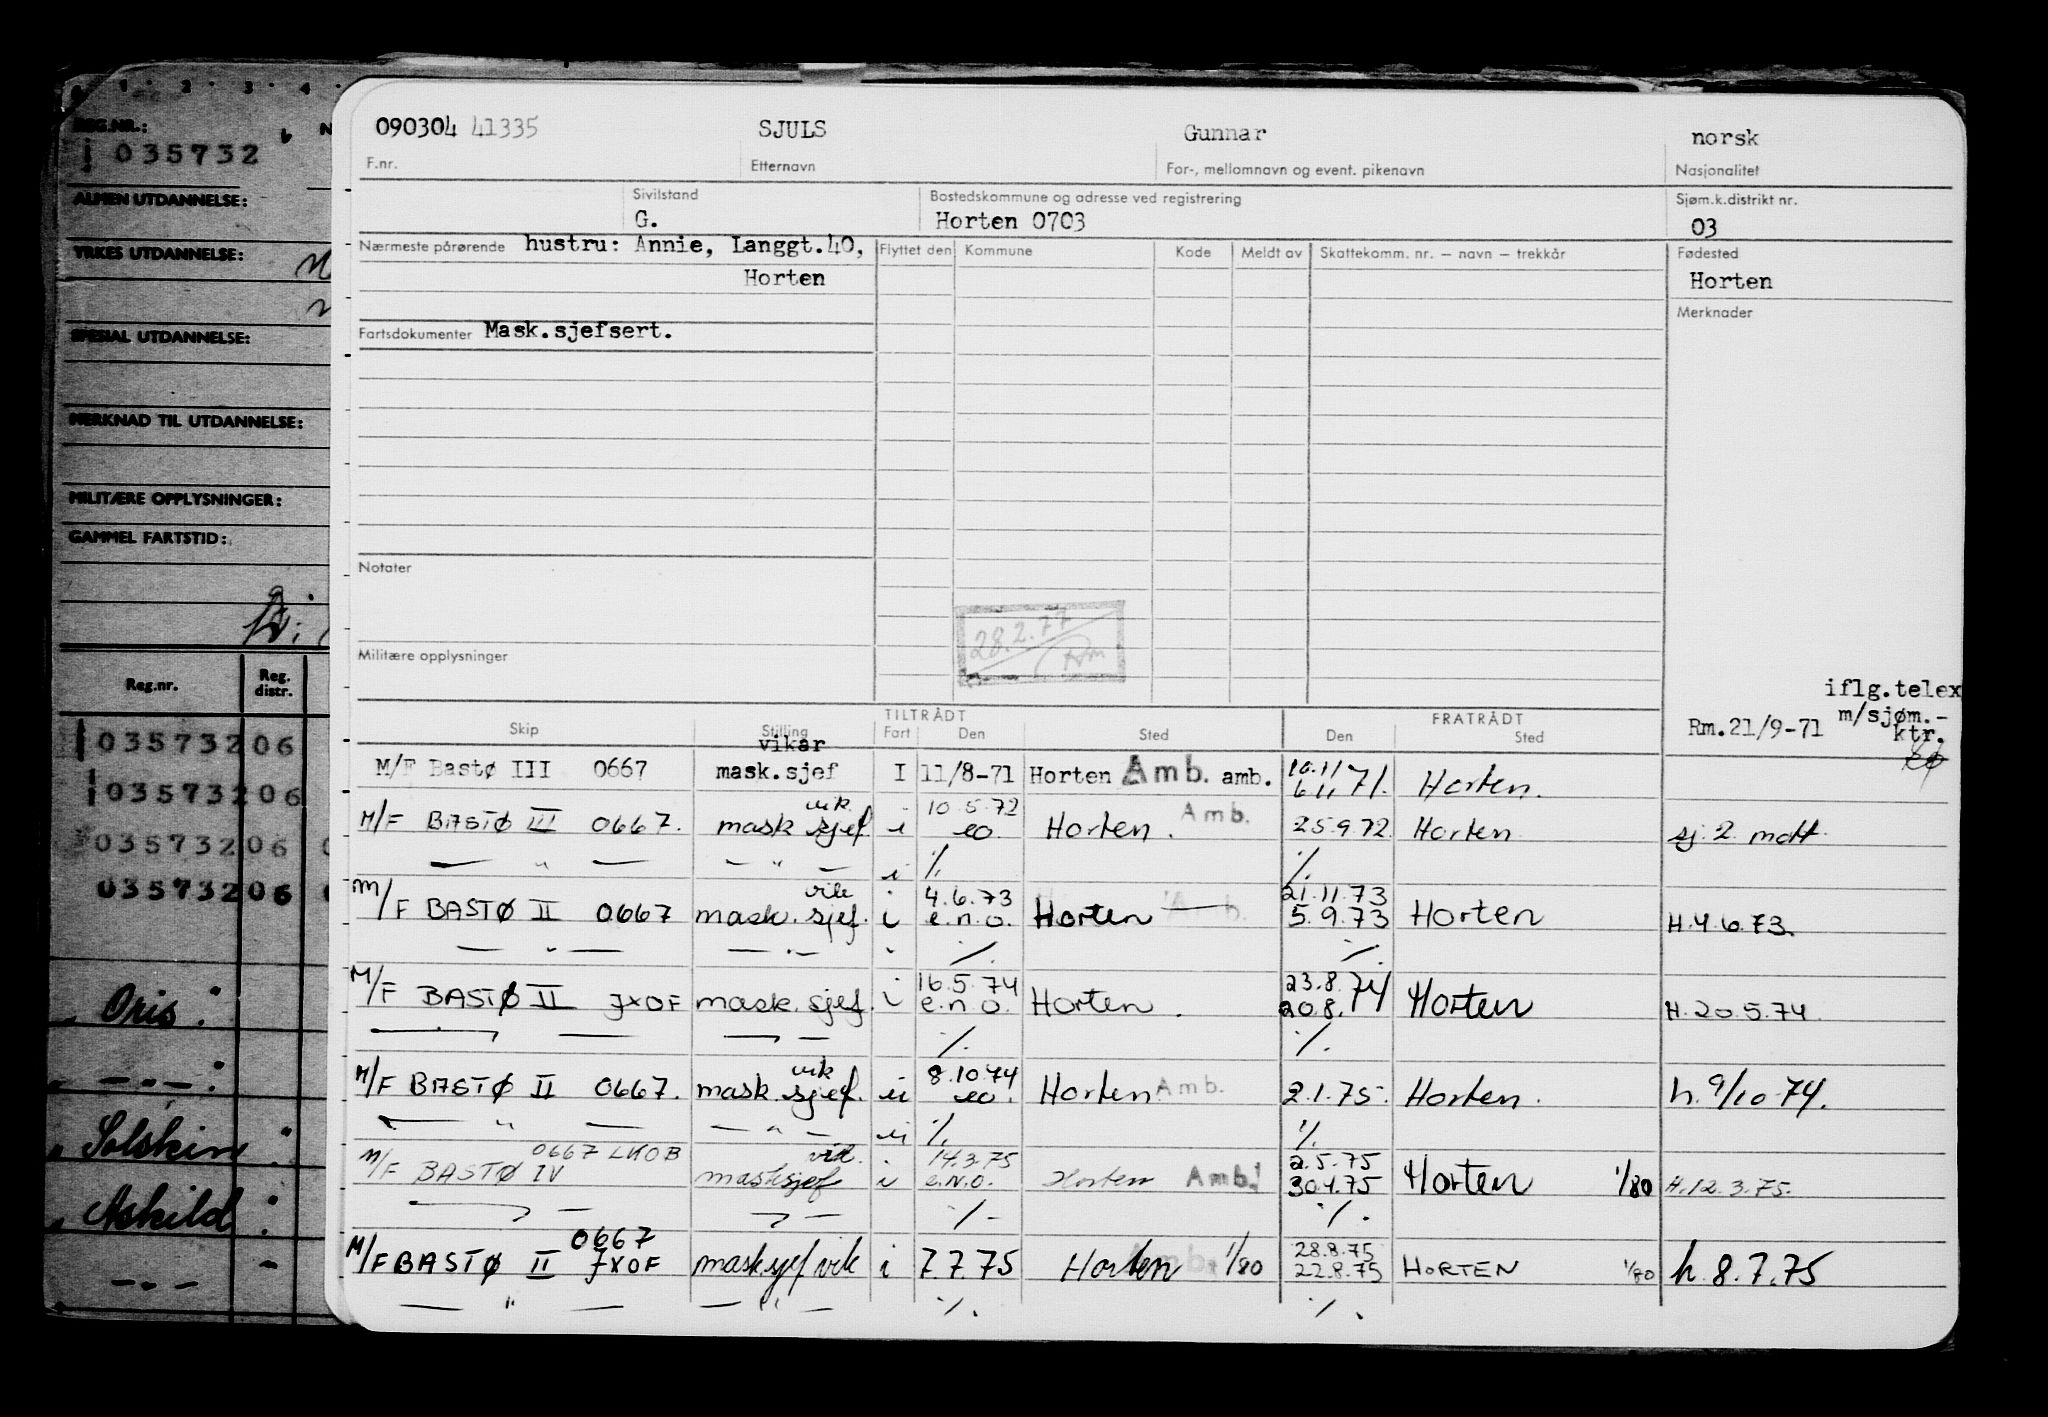 REG.NR.:
035732
ALMEN UTDANNELSE:
YRKES UTDANNELSE:
SPESIAL UTDANNELSE:
MERKNAD TIL UTDANNELSE:
MILITÆRE OPPLYSNINGER:
GAMMEL FARTSTID:
Reg.nr. Reg. distr.
035732 06
035732 06
035732 06
035732 06
" Oris :
" — " — :
" Solskin :
" Askild :
— " —
090304 41335 SJULS Gunnar norsk
F.nr. Etternavn For-, mellomnavn og event. pikenavn Nasjonalitet
Sivilstand Bostedskommune og adresse ved registrering Sjøm.k.distrikt nr.
G. Horten 0703 03
Nærmeste pårørende hustru: Annie, Langgt.40, Flyttet den Kommune Kode Meldt av Skattekomm. nr. – navn – trekkår Fødested
Horten Horten
Merknader
Fartsdokumenter Mask.sjefsert.
Notater
28.2.77
Militære opplysninger
iflg.telex
TILTRÅDT FRATRÅDT Rm.21/9-71 m/sjøm.-
Skip Stilling Fart Den Sted Den Sted ktr.
vikar
M/F Bastø III 0667 mask.sjef I 11/8-71 Horten Amb. amb. 10.11 6.11 71. Horten.
vik. 10.5.72 Amb.
M/F BASTØ III 0667. mask sjef. i eo. Horten. 25.9.72 Horten sj. 2. mott.
— " — — " — i %. %.
vik 4.6.73 Amb. 21.11.73
M/F BASTØ II 0667 mask. sjef. i e.n.o. Horten 5.9.73 Horten H.4.6.73.
— " — — " — " %. %.
16.5.74 23.8.74
M/F BASTØ II JXOF mask. sjef. i e.n.o. Horten. 20.8. Horten H.20.5.74.
— " — — " — %. %.
vik 8.10.74
M/F BASTØ II 0667. mask. sjef. ii eo. Horten Amb. 2.1.75. Horten. h. 9/10 74.
— " — — " — ii %. %.
0667 LKOB vik. 14.3.75 2.5.75
M/F BASTØ IV masksjef i e.n.o. Horten Amb. 30.4.75 Horten 1/80 H.12.3.75.
— " — — " — %. %.
0667 28.8.75
M/F BASTØ II JXOF mask.sjef vik i 7.7.75 Horten Amb. 1/80 22.8.75 HORTEN 1/80 h. 8.7.75
— " — — " — %. %.